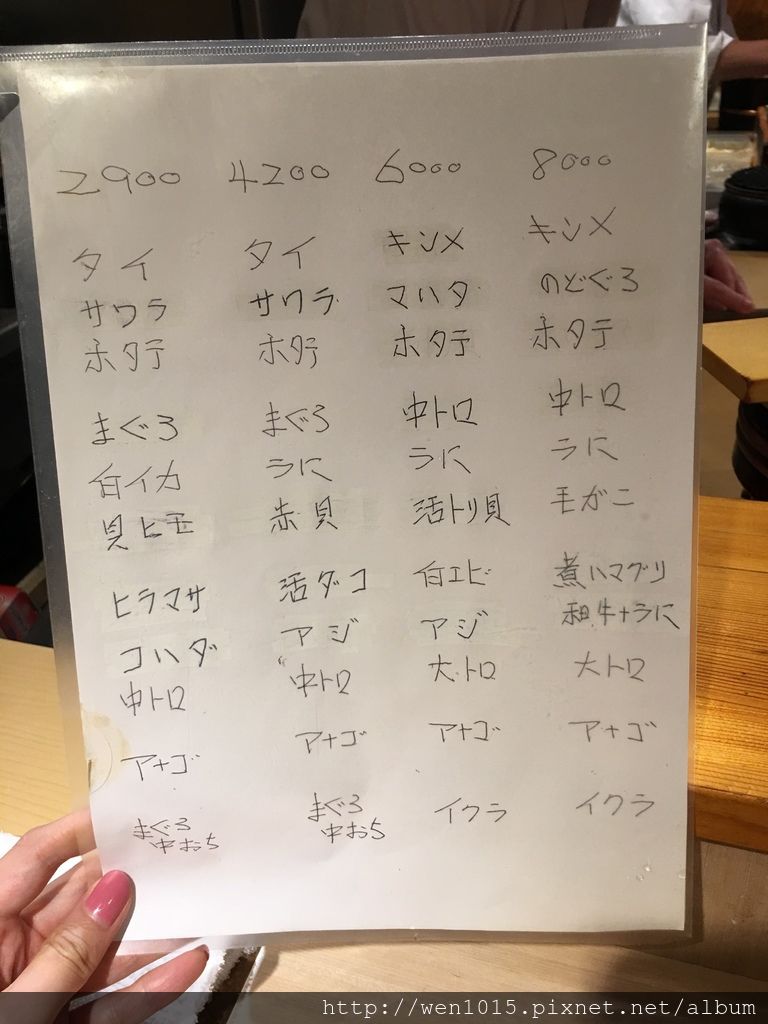 2900 4200 6000 8000
タイ タイ キンメ キンメ
サワラ サワラ マハタ のどぐろ
ホタテ ホタテ ホタテ ホタテ
まぐろ まぐろ 中トロ 中トロ
白イカ うに うに うに
貝ヒモ 赤貝 活トリ貝 毛がに
ヒラマサ 活ダコ 白エビ 煮ハマグリ
コハダ アジ アジ 和牛+うに
中トロ 中トロ 大トロ 大トロ
アナゴ アナゴ アナゴ アナゴ
まぐろ まぐろ イクラ イクラ
中おち 中おち
http://wen1015.pixnet.net/album